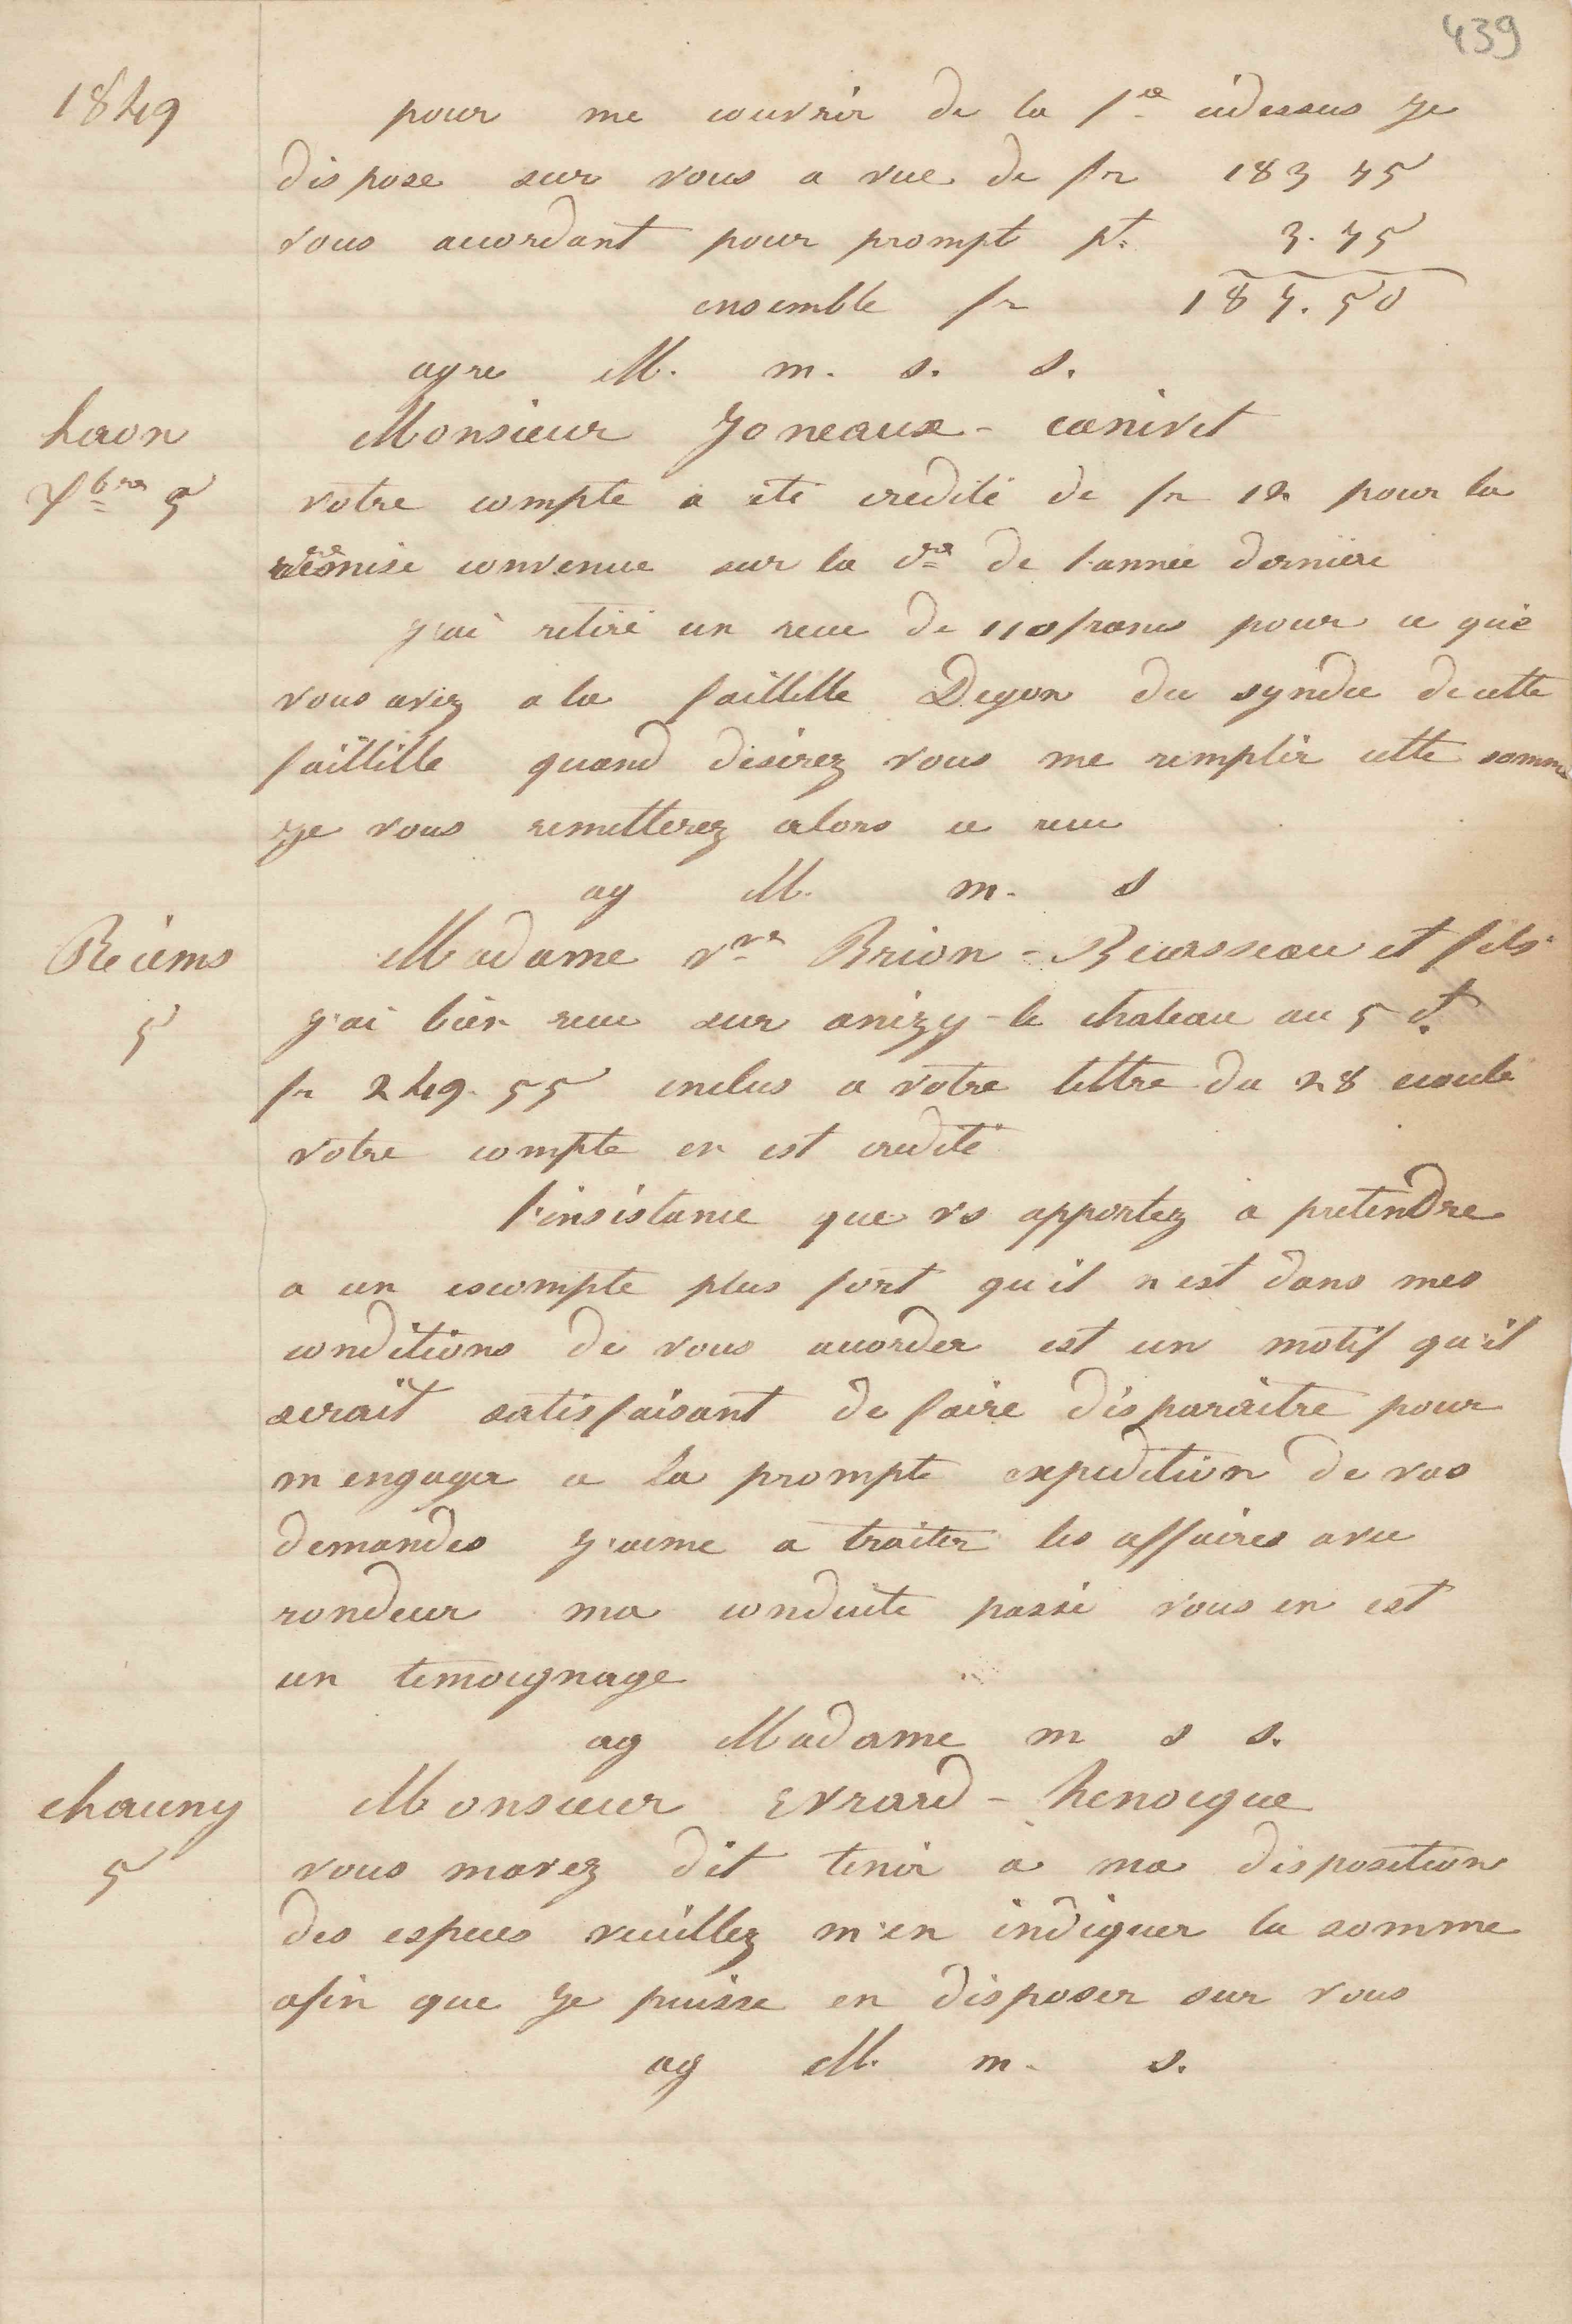 439
1849
pour me couvrir de la fre cidessus je
dispose sur vous a vue de fr 183 75
vous accordant pour prompt pt. 3.75
ensemble fr 187.50
agre M. m. s. s.
Laon
7bre 5
Monsieur Joneaux - canivet
votre compte a été credité de fr 12 pour la
remise convenue sur la dre de l'année dernière
j'ai retiré un recu de 110 francs pour ce que
vous aviez a la faillille Degon du syndic de cette
faillille quand desirez vous me remplir cette somme
je vous remetterez alors ce recu
ag M. m. s
Reiems
5
Madame vve Brion - Beursseau et fils
j'ai bien recu sur anizy-le chateau au 5 ct
fr 249.55 inclus a votre lettre du 28 ecoulé
votre compte en est credité
l'insistance que vs apportez a pretendre
a un escompte plus fort qu'il n est dans mes
conditions de vous accorder est un motif qu'il
serait satisfaisant de faire disparaitre pour
m engager a la prompte expedition de vos
demandes j'aime a traiter les affaires avec
rondeur ma conduite passé vous en est
un temoignage
ag Madame m s s.
chauny
5
Monsieur Evrard - henocque
vous mavez dit tenir a ma disposition
des especes veuillez m'en indiquer la somme
afin que je puisse en disposer sur vous
ag M. m. s.